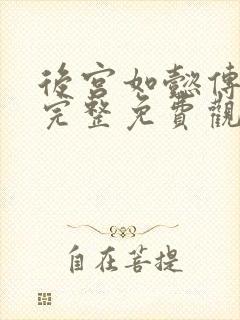 後宮如懿傳
完整免費觀
自在菩提